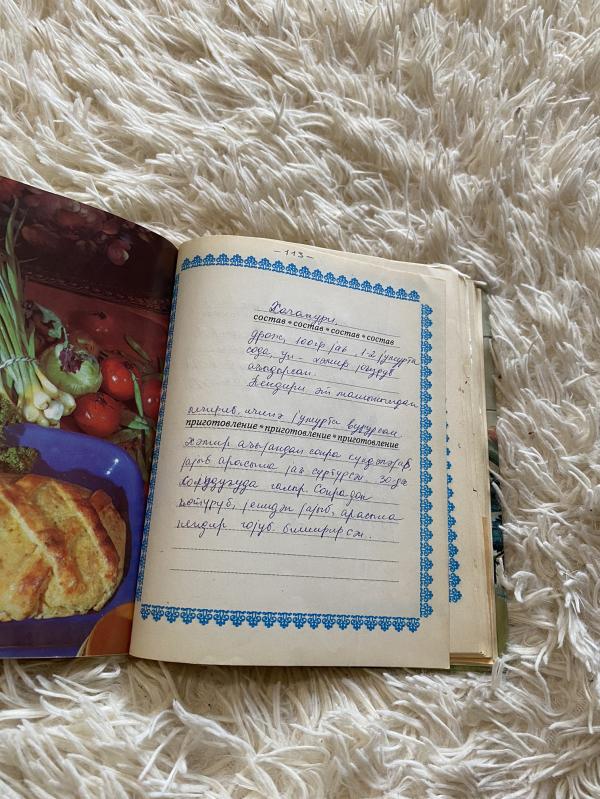 - 113 -
Хачапури.
состав * состав * состав * состав
дрож, 100гр јағ, 1-2 јумурта
сода, ун - хәмир јоғуруб
Пендири әт машынындан
кечириб, ичинә јумурта вурурсан
приготовление * приготовление * приготовление
хәмир аҹыјандан сонра
јајыб арасына јағ сүртүрсән 30 дәг
холодуҹуда галыр. Сонрадан
ҝөтүрүб, јенидән јајыб, арасына
пендир гојуб. Биширирсән.